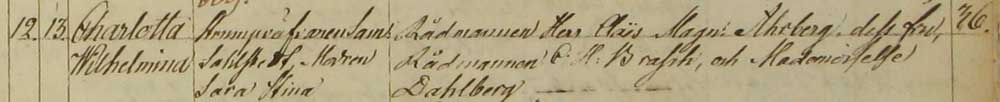 12. 13. Charlotta Strumpväfvaren Sam: Rådmannen Herr Claës Magn: Ahlberg. dess fru, 36.
Wilhelmina Sahlstedt, Modren Rådmannen C. H. Brasch, och Mademoiselle
Sara Stina Dahlberg